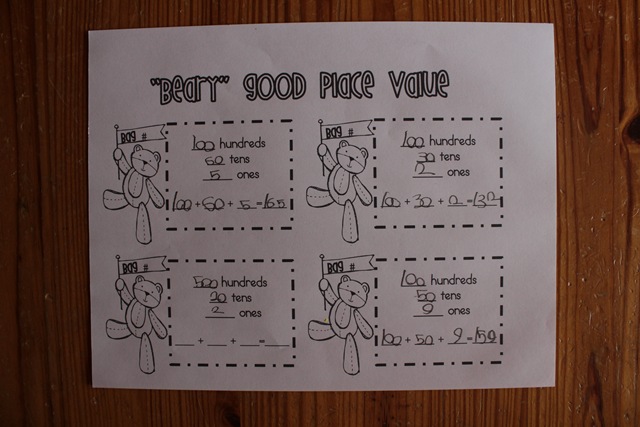 "Beary" Good Place Value
Bag #
100 hundreds
60 tens
5 ones
100 + 60 + 5 = 165
Bag #
100 hundreds
30 tens
2 ones
100 + 30 + 2 = 132
Bag #
500 hundreds
20 tens
2 ones
__ + __ + __ = __
Bag #
100 hundreds
50 tens
9 ones
100 + 50 + 9 = 159